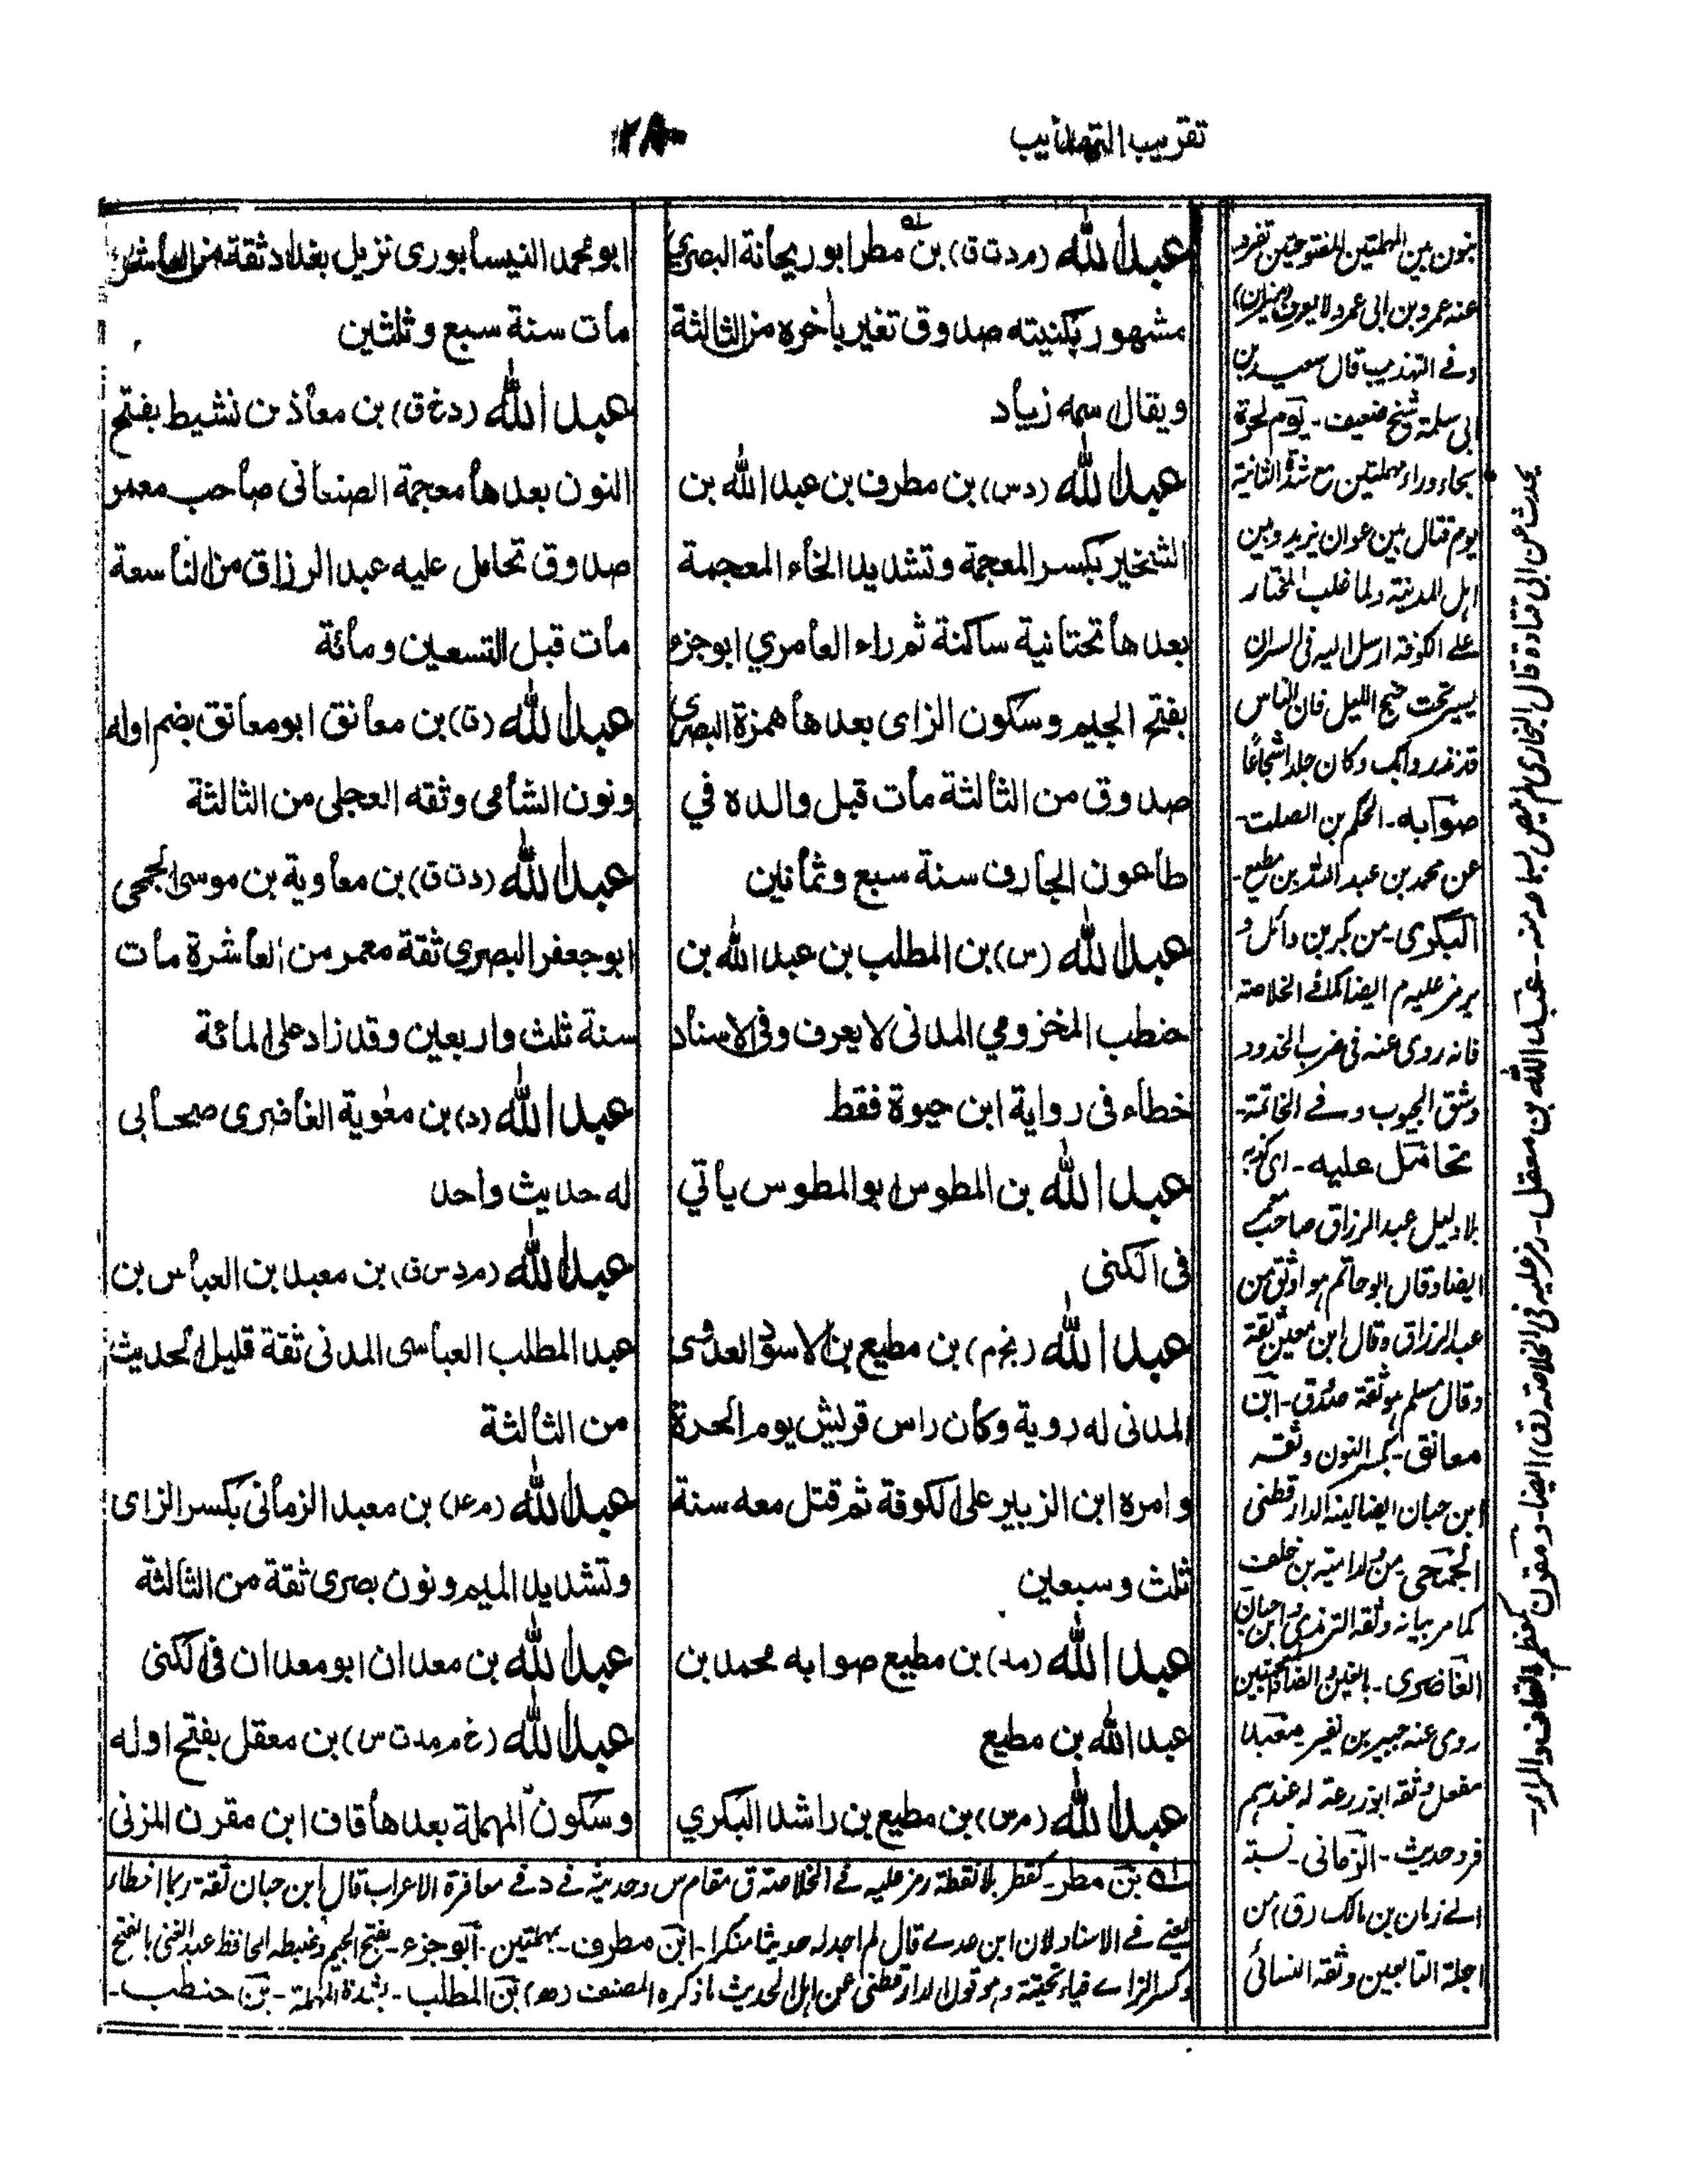 تقريب التهذيب
٢٨٠
عبد الله (م د ت ق) بن مطر ابو ريحانة البصري
مشهور بكنيته صدوق تغير بأخره من الثالثة
ويقال اسمه زياد
عبد الله (د س) بن مطرف بن عبد الله بن
الشخير بكسر المعجمة وتشديد الخاء المعجمة
بعدها تحتانية ساكنة ثم راء العامري ابو جزء
بفتح الجيم وسكون الزاى بعدها همزة البصري
صدوق من الثالثة مات قبل والده في
طاعون الجارف سنة سبع وثمانين
عبد الله (س) بن المطلب بن عبد الله بن
حنطب المخزومي المدنى لا يعرف وفى الاسناد
خطاء فى رواية ابن حيوة فقط
عبد الله بن المطوس ابو المطوس يأتي
فى الكنى
عبد الله (بخ م) بن مطيع بن الاسود العدوى
المدنى له روية وكان راس قريش يوم الحرة
وامره ابن الزبير على الكوفة ثم قتل معه سنة
ثلث وسبعين
عبد الله (مد) بن مطيع صوابه محمد بن
عبد الله بن مطيع
عبد الله (م س) بن مطيع بن راشد البكري
ابو محمد النيسابورى نزيل بغداد ثقة من العاشرة
مات سنة سبع وثلثين
عبد الله (د غ ق) بن معاذ بن نشيط بفتح
النون بعدها معجمة الصنعانى صاحب معمر
صدوق تحامل عليه عبد الرزاق من التاسعة
مات قبل التسعين ومائة
عبد الله (ق) بن معانق ابو معانق بضم اوله
ونون الشامى وثقه العجلى من الثالثة
عبد الله (د ت ق) بن معاوية بن موسى الجمحى
ابو جعفر البصرى ثقة معمر من العاشرة مات
سنة ثلث واربعين وقد زاد على المائة
عبد الله (د) بن معوية الغاضرى صحابى
له حديث واحد
عبد الله (م د س ق) بن معبد بن العباس بن
عبد المطلب العباسى المدنى ثقة قليل الحديث
من الثالثة
عبد الله (م عه) بن معبد الزمانى بكسر الزاى
وتشديد الميم ونون بصرى ثقة من الثالثة
عبد الله بن معدان ابو معدان فى الكنى
عبد الله (خ م مد ت س) بن معقل بفتح اوله
وسكون المهملة بعدها قاف ابن مقرن المزنى
بنون بين المهملتين المفتوحتين تفرد
عنه عمرو بن ابى عمرو لا يعرف (ميزان)
وفى التهذيب قال سعيد بن
ابى سلمة شيخ ضعيف - يوم الحرة
بحاء وراء مهملتين مع شدة الثانية
يوم قتال بين عوان يزيد وبين
اهل المدينة ولما غلب المختار
على الكوفة ارسل اليه فى السر ان
يسير تحت جنح الليل فان الناس
قد نذروا بك وكان جلدا شجاعا
صوابه - الحكم بن الصلت -
عن محمد بن عبد الله بن مطيع -
البكرى - من بكر بن وائل و
يرمز عليه م ايضا كما فى الخلاصة
فانه روى عنه فى ضرب الخدود
وشق الجيوب وفى الخاتمة -
تحامل عليه - اى كذبه
بلا دليل عبد الرزاق صاحب معمر
ايضا وقال ابو حاتم هو اوثق من
عبد الرزاق وقال ابن معين ثقة
وقال مسلم هو ثقة صدوق - ابن
معانق - بكسر النون وثقه
ابن حبان ايضا لينه الدارقطنى
الجمحى من ولد امية بن خلف
كما مر بيانه وثقه الترمذى وابن حبان
الغاضرى - بالغين والضاد المعجمتين
روى عنه جبير بن نفير معبد
مفعل وثقه ابو زرعة له عندهم
فرد حديث - الزمانى - نسبة
الى زمان بن مالك (ق) من
اجلة التابعين وثقه النسائى
له بن مطر - كقطر بلا نقطة رمز عليه فى الخلاصة ق مقام س وحديثه فى د فى معاقرة الاعراب قال ابن حبان ثقة ربما اخطاء
يعنى فى الاسناد لان ابن عدى قال لم اجد له حديثا منكرا - ابن مطرف - بمهملتين - ابو جزء - بفتح الجيم وضبطه الحافظ عبد الغنى بالفتح
وكسر الزاى فياء تحتية وهو قول الدارقطنى عن اهل الحديث ما ذكره المصنف بن المطلب - بشدة المهملة - بن حنطب -
يحدث عن ابى قتادة قال البخارى لم ينص لسماعه منه - عبد الله بن معقل - رمز عليه فى الخلاصة (ق) ايضا - ومقرن